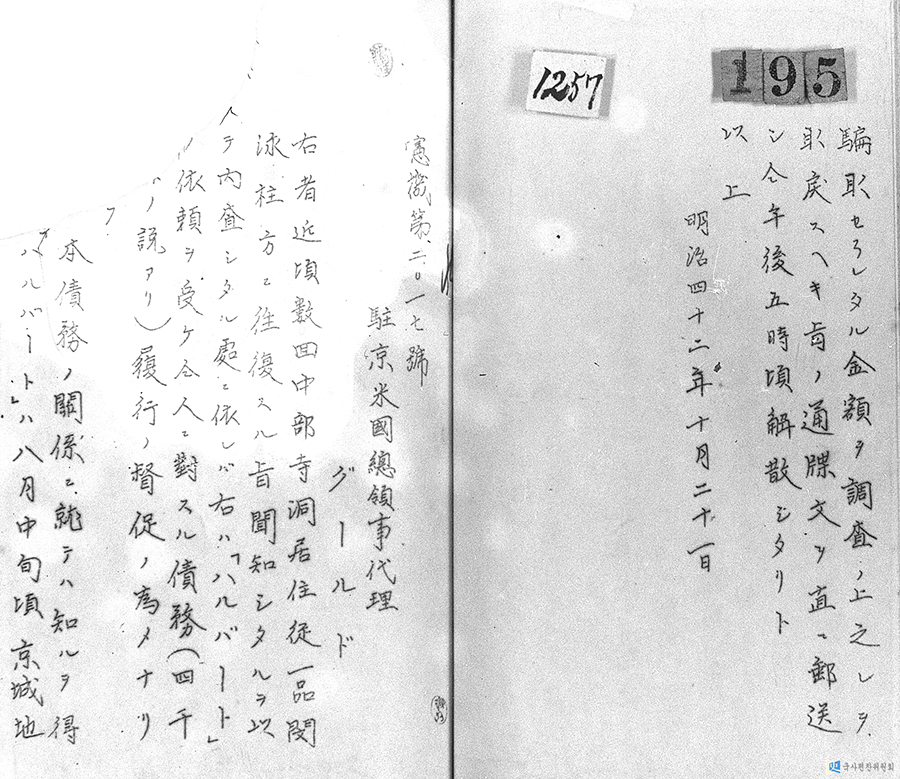 195
1257
騙取セラレタル金額ヲ調査ノ上之レヲ
取戻スヘキ旨ノ通牒文ヲ直ニ郵送
シ仝年後五時頃解散シタリト
以上
明治四十二年十月二十一日
憲機第二〇一七號
駐京米國總領事代理
グールド
右者近頃數回中部寺洞居住從一品閔
泳柱方ニ往復スル旨聞知シタルヲ以
テ內查シタル處ニ依レバ右ハ「ハルバート」
ノ依賴ヲ受ケ仝人ニ對スル債務(四千
ノ說アリ)履行ノ督促ノ爲メナリ
本債務ノ關係ニ就テハ知ルヲ得
ハルバート」ハ八月中旬頃京城地
국사편찬위원회